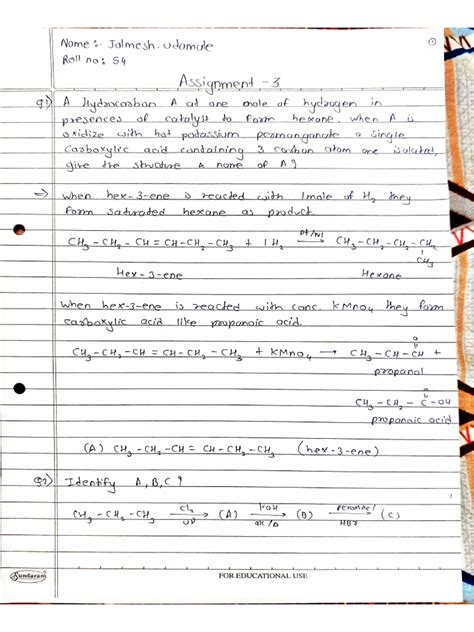 Name :- Jalmesh. Udamale
①
Roll no: 54
Assignment - 3
Q1) A Hydrocarbon A at one mole of hydrogen in
presences of catalyst to form hexane. when A is
oxidize with hot potassium permanganate a single
carboxylic acid containing 3 carbon atom are isolated,
give the structure & name of A?
⇒ when hex-3-ene is reacted with 1mole of H₂ they
form saturated hexane as product.
CH₃-CH₂-CH=CH-CH₂-CH₃ + 1H₂ Pt/Ni → CH₃-CH₂-CH₂-CH₂
CH₃
Hex-3-ene Hexane
when hex-3-ene is reacted with conc. KMnO₄ they form
carboxylic acid like propanoic acid.
O
CH₃-CH₂-CH=CH-CH₂-CH₃ + KMnO₄ → CH₃-CH-CH +
propanal
O
CH₃-CH₂-C-OH
propanoic acid
(A) CH₃-CH₂-CH=CH-CH₂-CH₃ (hex-3-ene)
Q2) Identify A, B, C?
CH₃-CH₂-CH₃ Cl₂ → UV (A) KOH → (B) peroxide / HBr → (C)
Sundaram FOR EDUCATIONAL USE